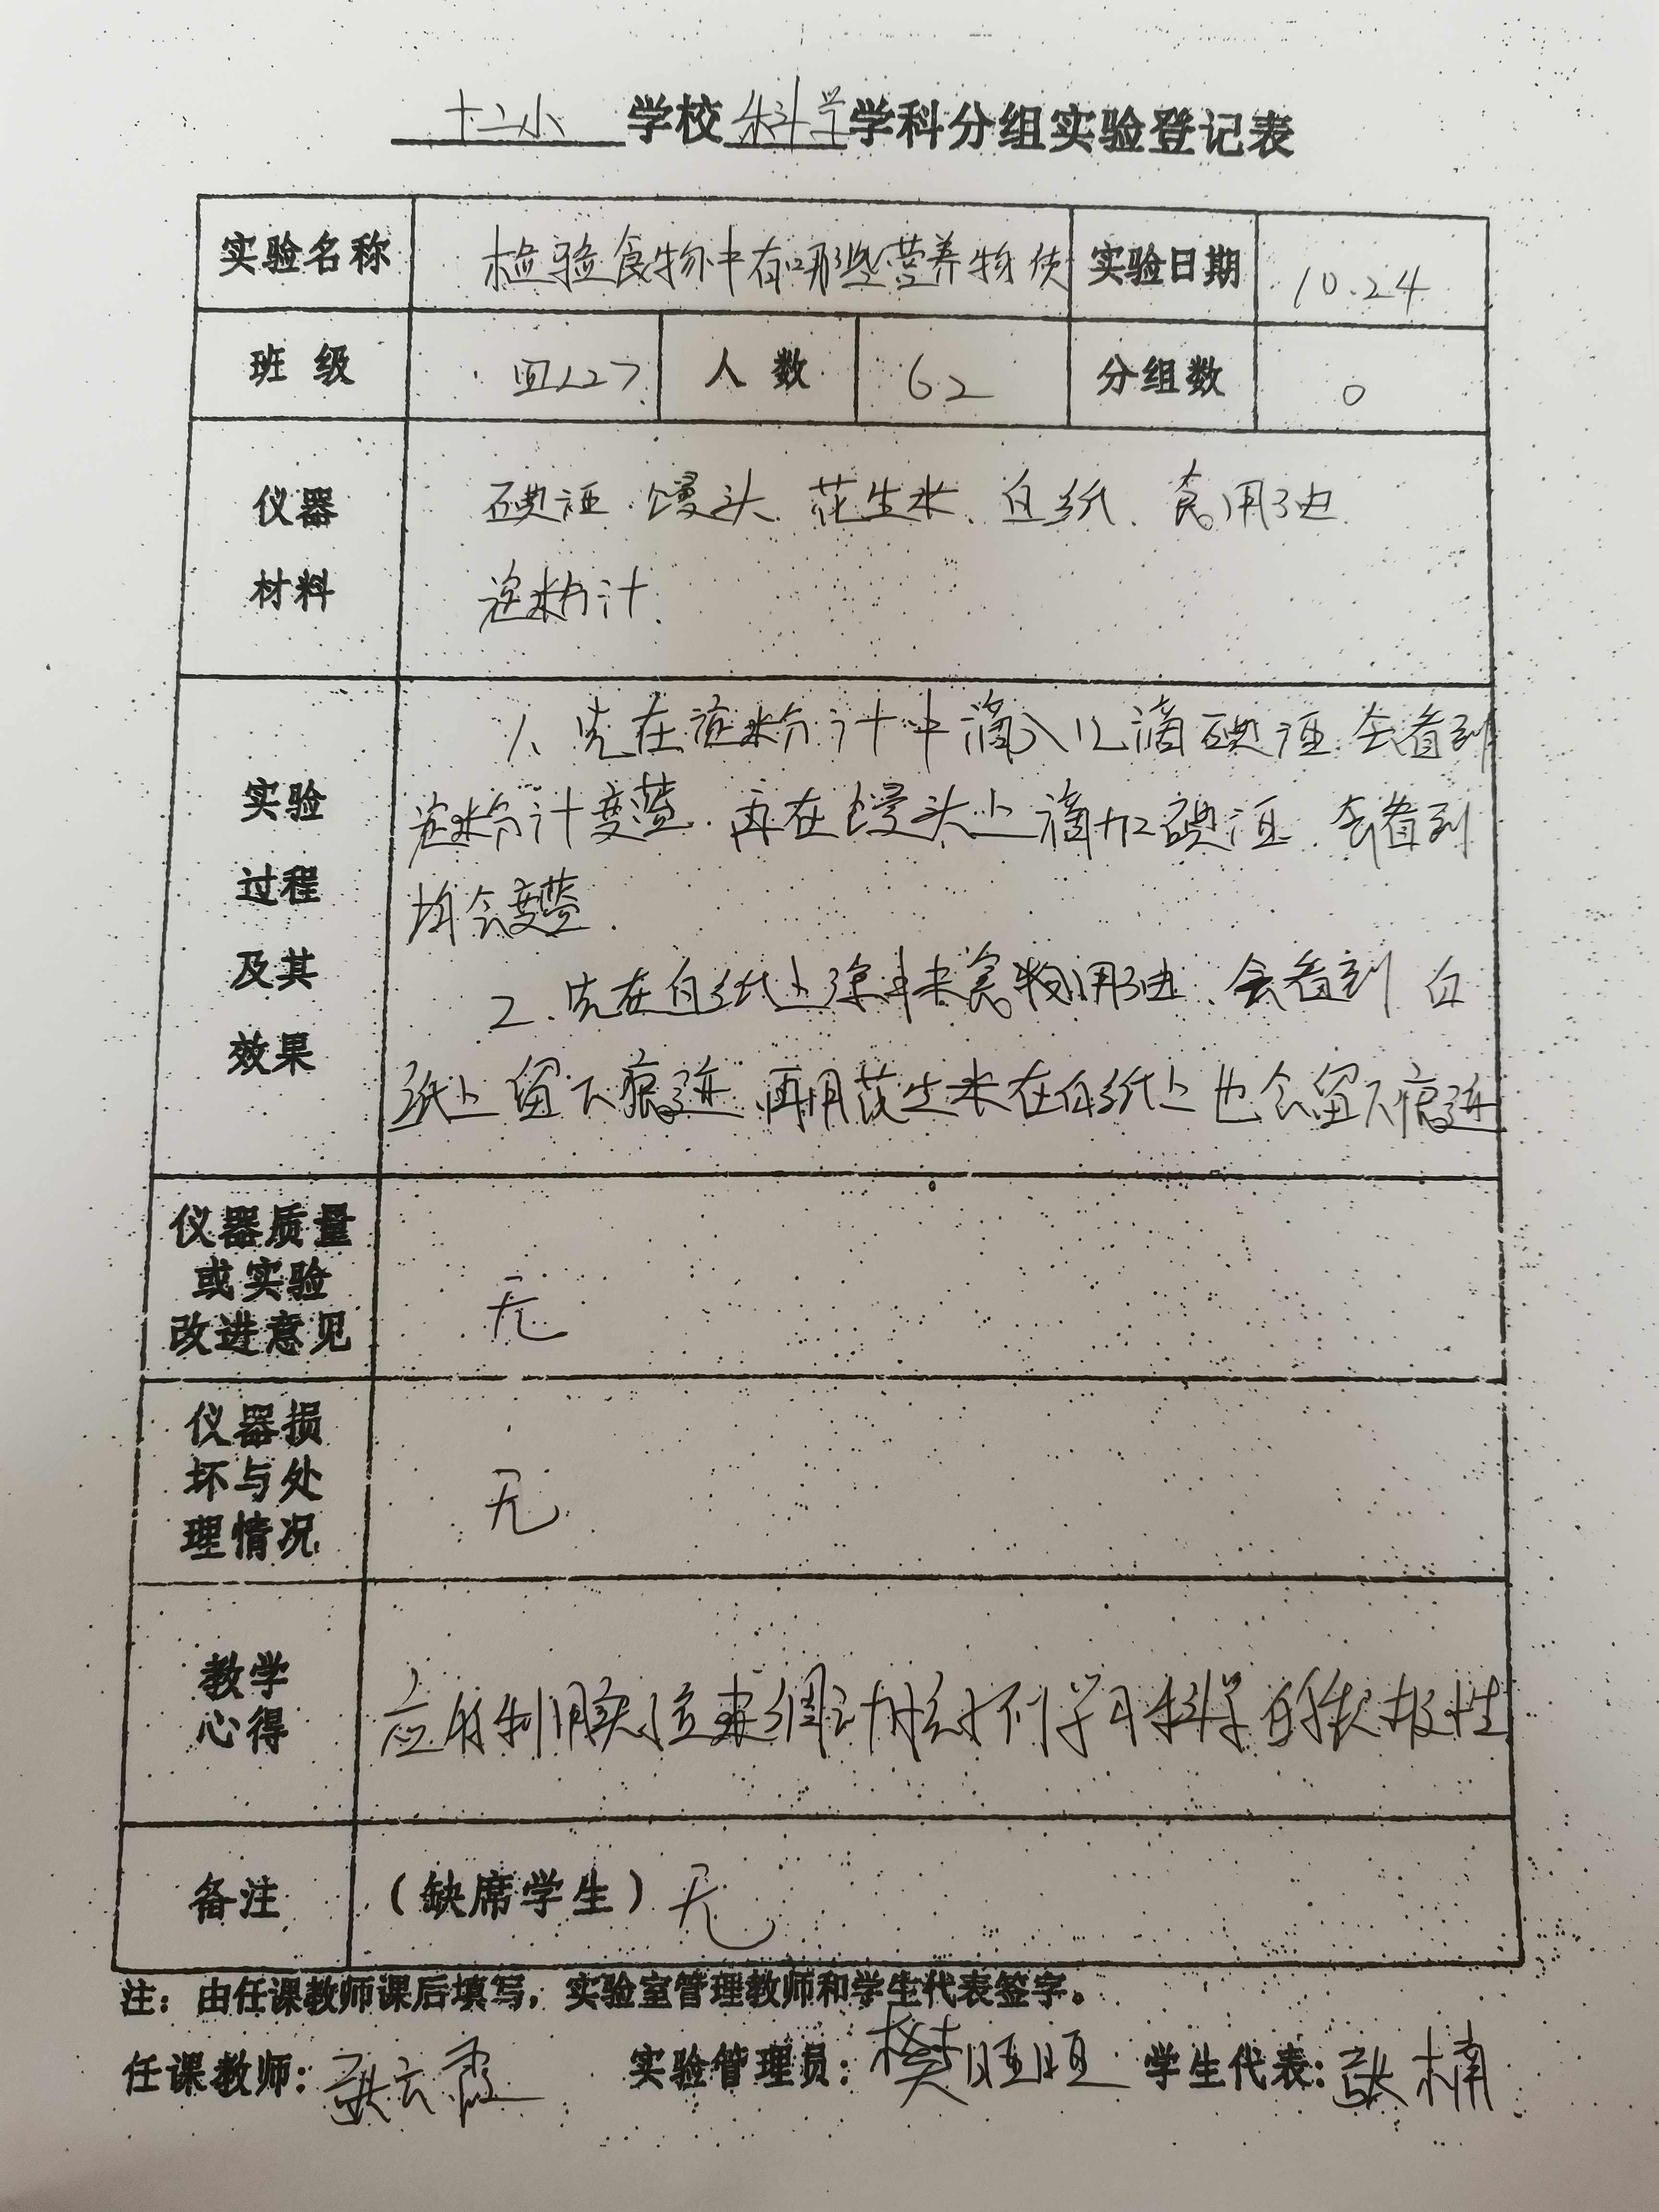 十二小 学校 科学 学科分组实验登记表
实验名称 检验食物中有哪些营养物质 实验日期 10.24
班 级 四127 人 数 62 分组数 0
仪器 碘酒、馒头、花生米、白纸、食用油
材料 淀粉汁.
1、先在淀粉汁中滴入几滴碘酒.会看到
实验 淀粉汁变蓝.再在馒头上滴加碘酒.会看到
过程 均会变蓝.
及其 2.先在白纸上涂抹食物用油、会看到白
效果 纸上留下痕迹.再用花生米在白纸上也会留下痕迹
仪器质量
或实验 无
改进意见
仪器损
坏与处 无
理情况
教学
心得 学习科学的积极性
备注 (缺席学生) 无
注：由任课教师课后填写，实验室管理教师和学生代表签字。
任课教师: 张云霞 实验管理员: 樊 学生代表: 张楠